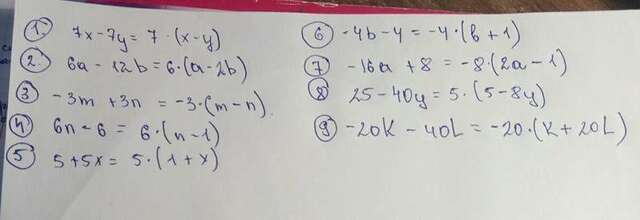 1. 7x-7y = 7·(x-y)
2. 6a - 12b = 6·(a-2b)
3 -3m + 3n = -3·(m-n)
4 6n - 6 = 6·(n-1)
5 5+5x = 5·(1+x)
6 -4b-4 = -4·(b+1)
7 -16a + 8 = -8·(2a-1)
8 25-40y = 5·(5-8y)
9 -20K - 40L = -20·(K+20L)